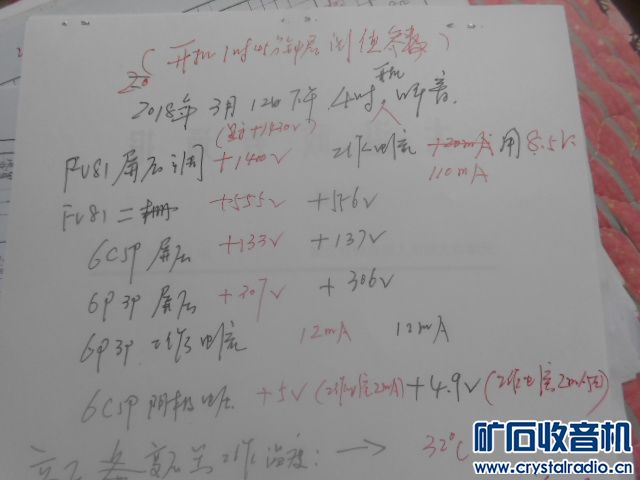 (开机1小时分钟后测值参数)
2018年3月12日下午4时开机
(直流+1430V)
FU81屏压 +1400V 工作电流 +120mA 用8.5V
110mA
FU81二栅 +555V +556V
6C5P屏压 +133V +137V
6P3P屏压 +307V +306V
6P3P工作电流 12mA 12mA
6C5P阴极电压 +5V(工作电流2mA) +4.9V(工作电流2mA
高压 工作温度: → 32°C
矿石收音机
www.crystalradio.cn